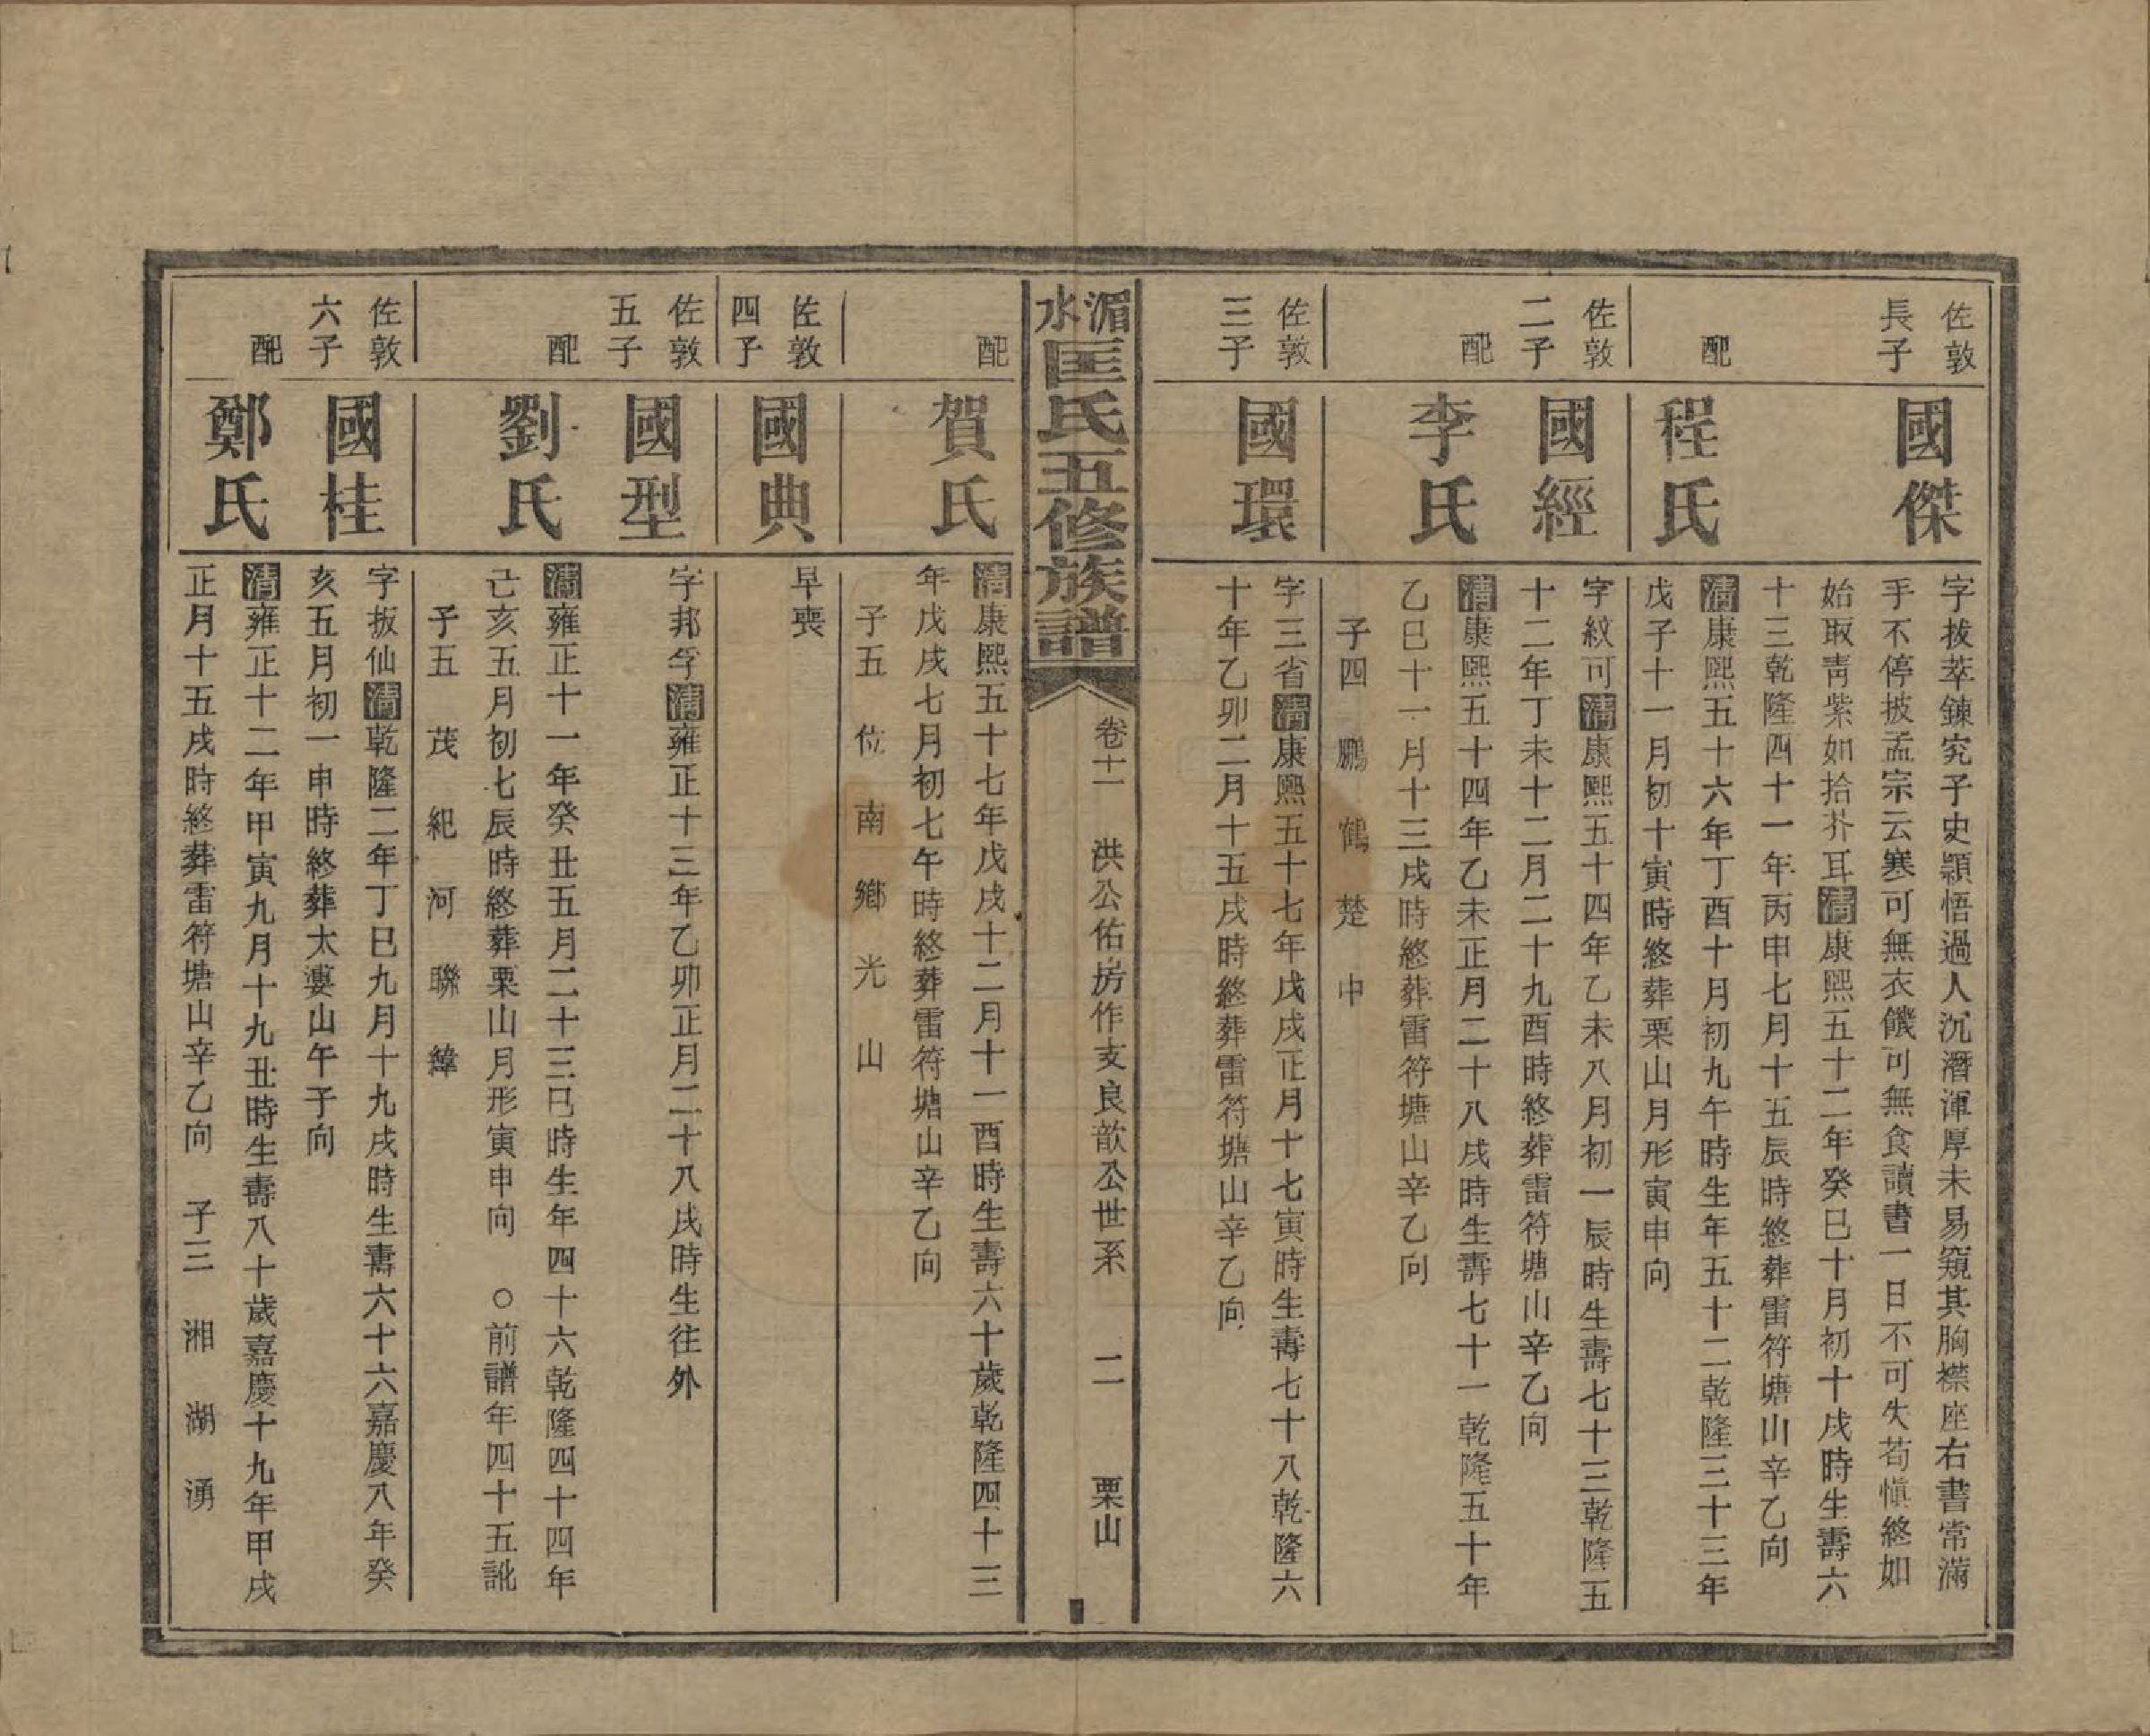 佐敦
長子
國傑
字拔萃鍊究子史頴悟過人沉潛渾厚未易窺其胸襟座右書常滿
手不停披孟宗云寒可無衣饑可無食讀書一日不可失苟慎終如
始取靑紫如拾芥耳清康熙五十二年癸巳十月初十戌時生壽六
十三乾隆四十一年丙申七月十五辰時終葬雷符塘山辛乙向
配
程氏
清康熙五十六年丁酉十月初九午時生年五十二乾隆三十三年
戊子十一月初十寅時終葬栗山月形寅申向
佐敦
二子
國經
字紋可清康熙五十四年乙未八月初一辰時生壽七十三乾隆五
十二年丁未十二月二十九酉時終葬雷符塘山辛乙向
配
李氏
清康熙五十四年乙未正月二十八戌時生壽七十一乾隆五十年
乙巳十一月十三戌時終葬雷符塘山辛乙向
子四 鵬 鶴 楚 中
佐敦
三子
國環
字三省清康熙五十七年戊戌正月十七寅時生壽七十八乾隆六
十年乙卯二月十五戌時終葬雷符塘山辛乙向
湄水匡氏五修族譜
卷十一 洪公佑房作支良歆公世系 二 栗山
配
賀氏
清康熙五十七年戊戌十二月十一酉時生壽六十歲乾隆四十三
年戊戌七月初七午時終葬雷符塘山辛乙向
子五 位 南 鄉 光 山
佐敦
四子
國典
早喪
佐敦
五子
國型
字邦孚清雍正十三年乙卯正月二十八戌時生往外
配
劉氏
清雍正十一年癸丑五月二十三巳時生年四十六乾隆四十四年
己亥五月初七辰時終葬栗山月形寅申向 ○前譜年四十五訛
子五 茂 紀 河 聯 緯
佐敦
六子
國桂
字扳仙清乾隆二年丁巳九月十九戌時生壽六十六嘉慶八年癸
亥五月初一申時終葬太婆山午子向
配
鄭氏
清雍正十二年甲寅九月十九丑時生壽八十歲嘉慶十九年甲戌
正月十五戌時終葬雷符塘山辛乙向 子三 湘 湖 湧